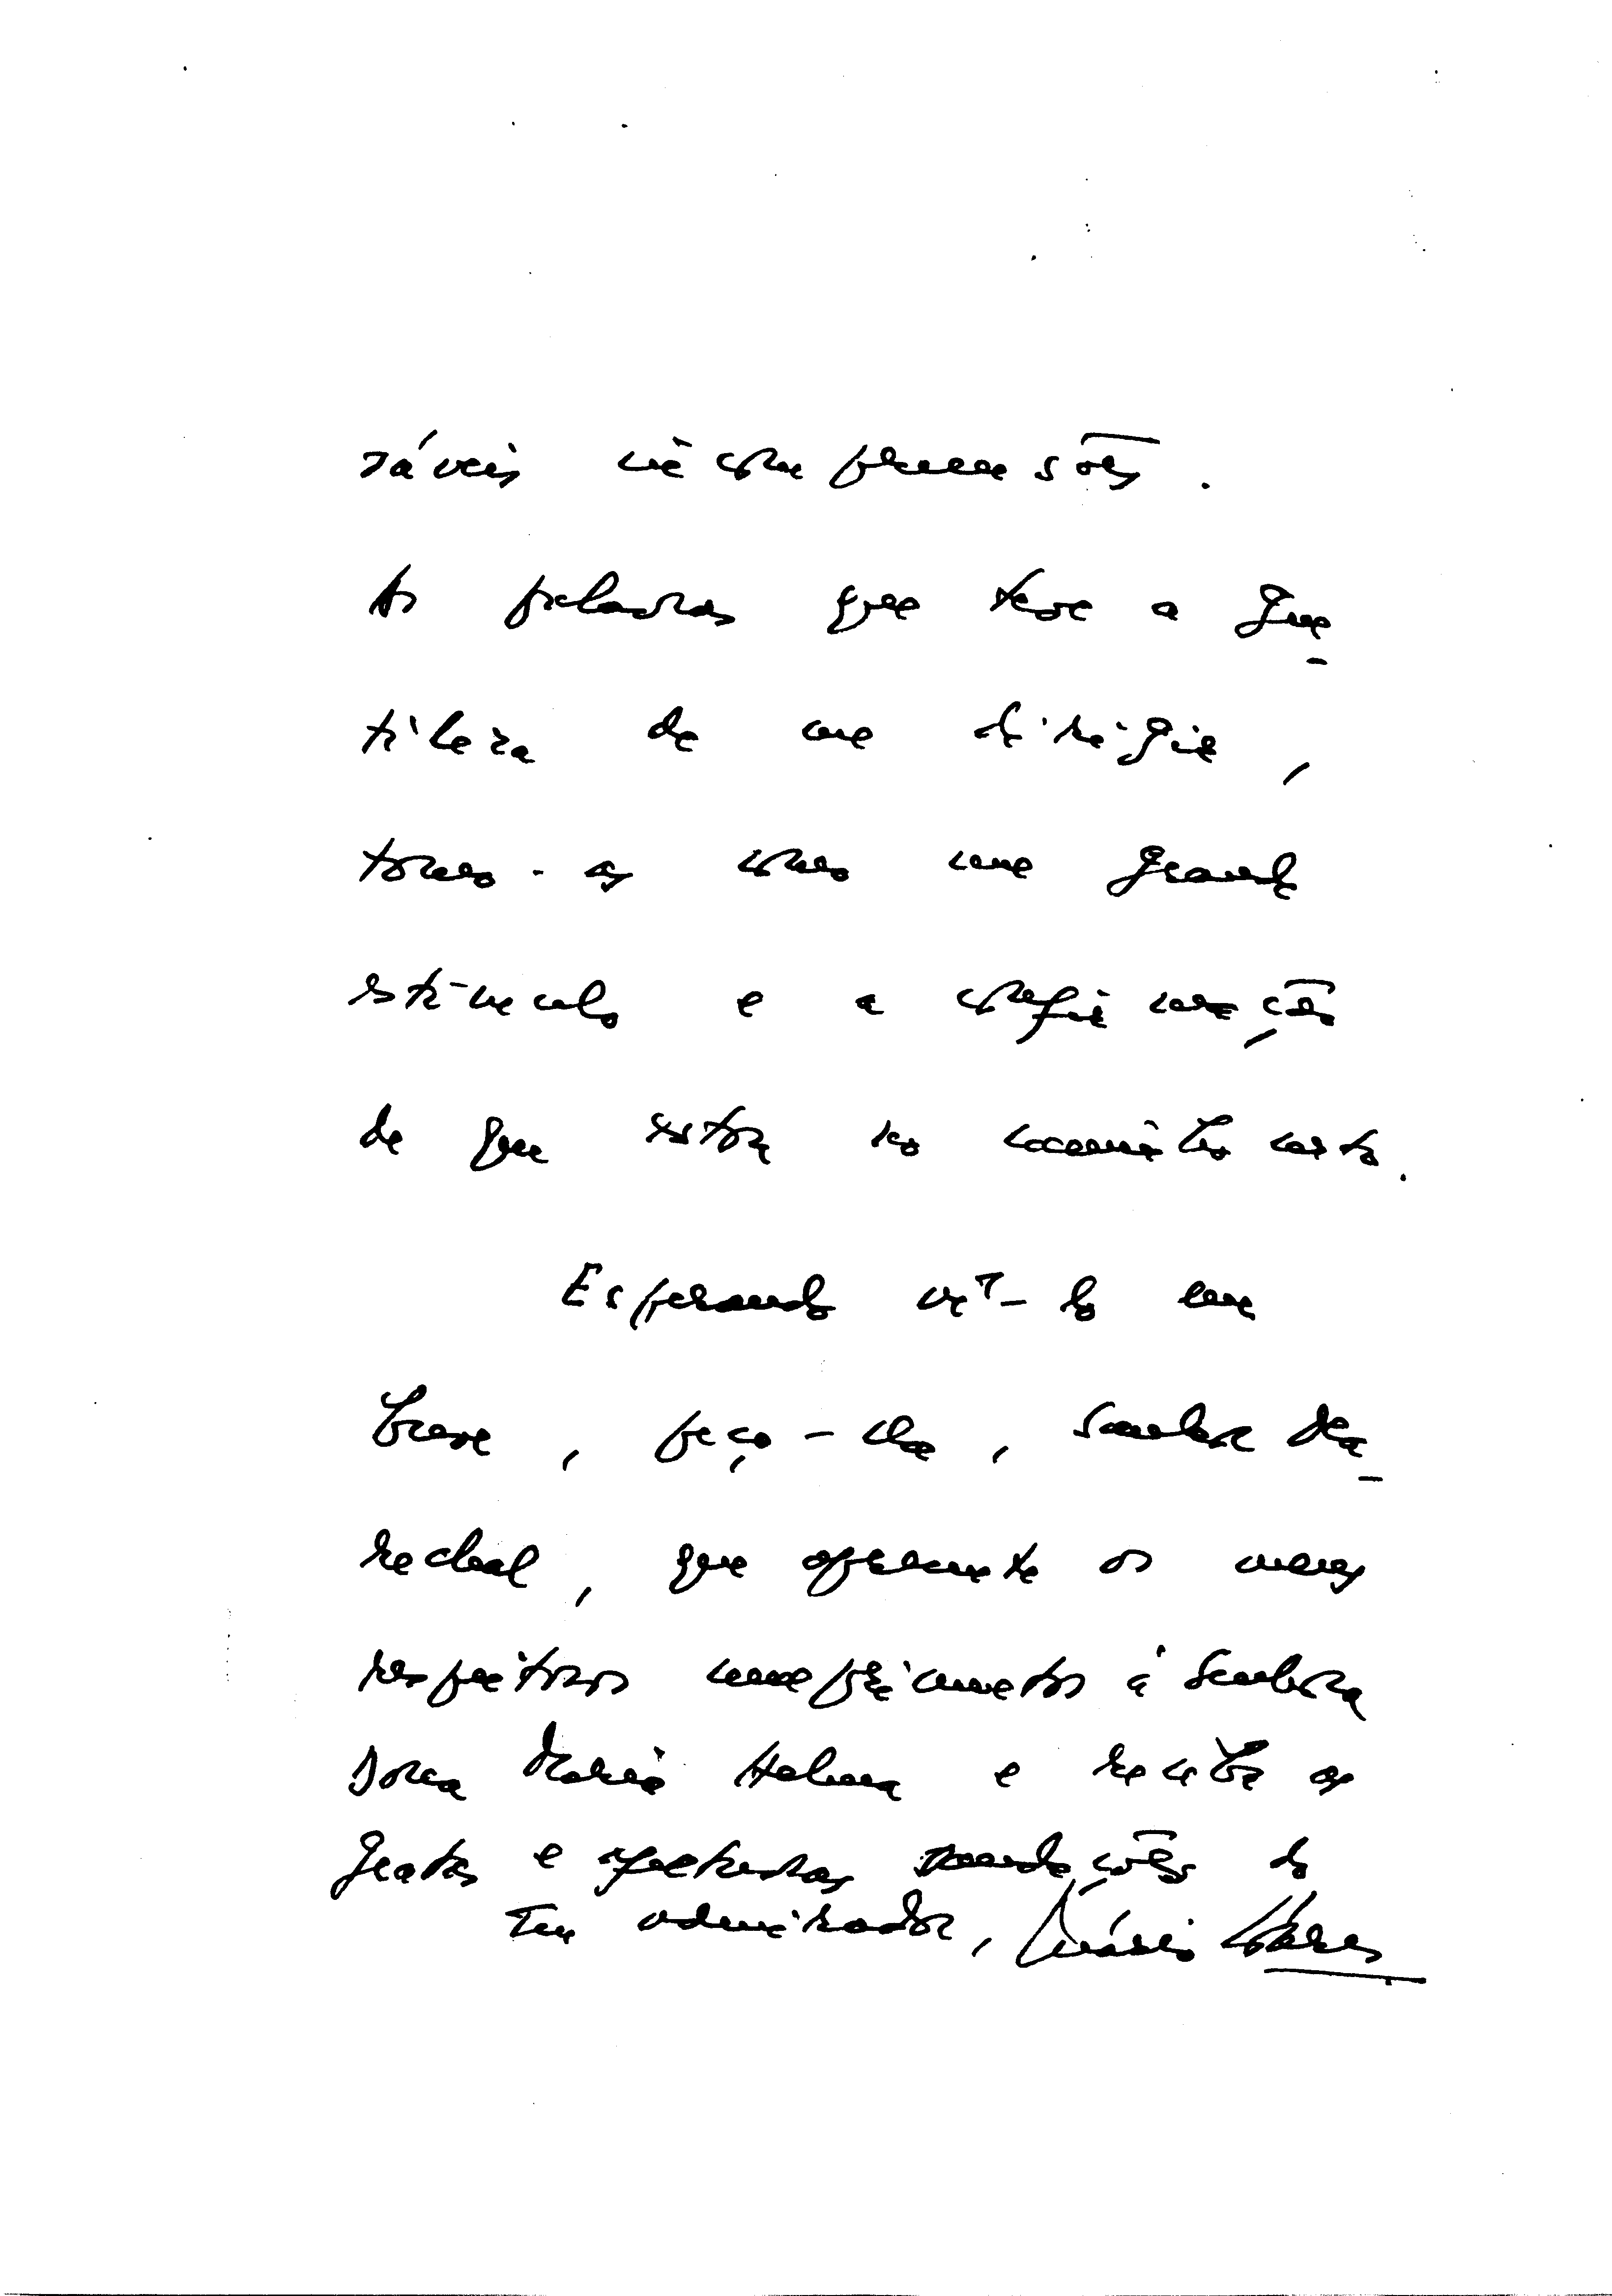 ráveis incompreensões.
As palavras que teve a gen-
tileza de me dirigir,
tomo-as como um grande
estímulo e a confirmação
de que estou no caminho certo.
Esperando vê-lo em
breve, peço-lhe, Senhor Ma-
rechal, que apresente os meus
respeitosos cumprimentos à Senhora
Dona Maria Helena e receba as
gratas e afectuosas saudações do
seu admirador, Mário Soares